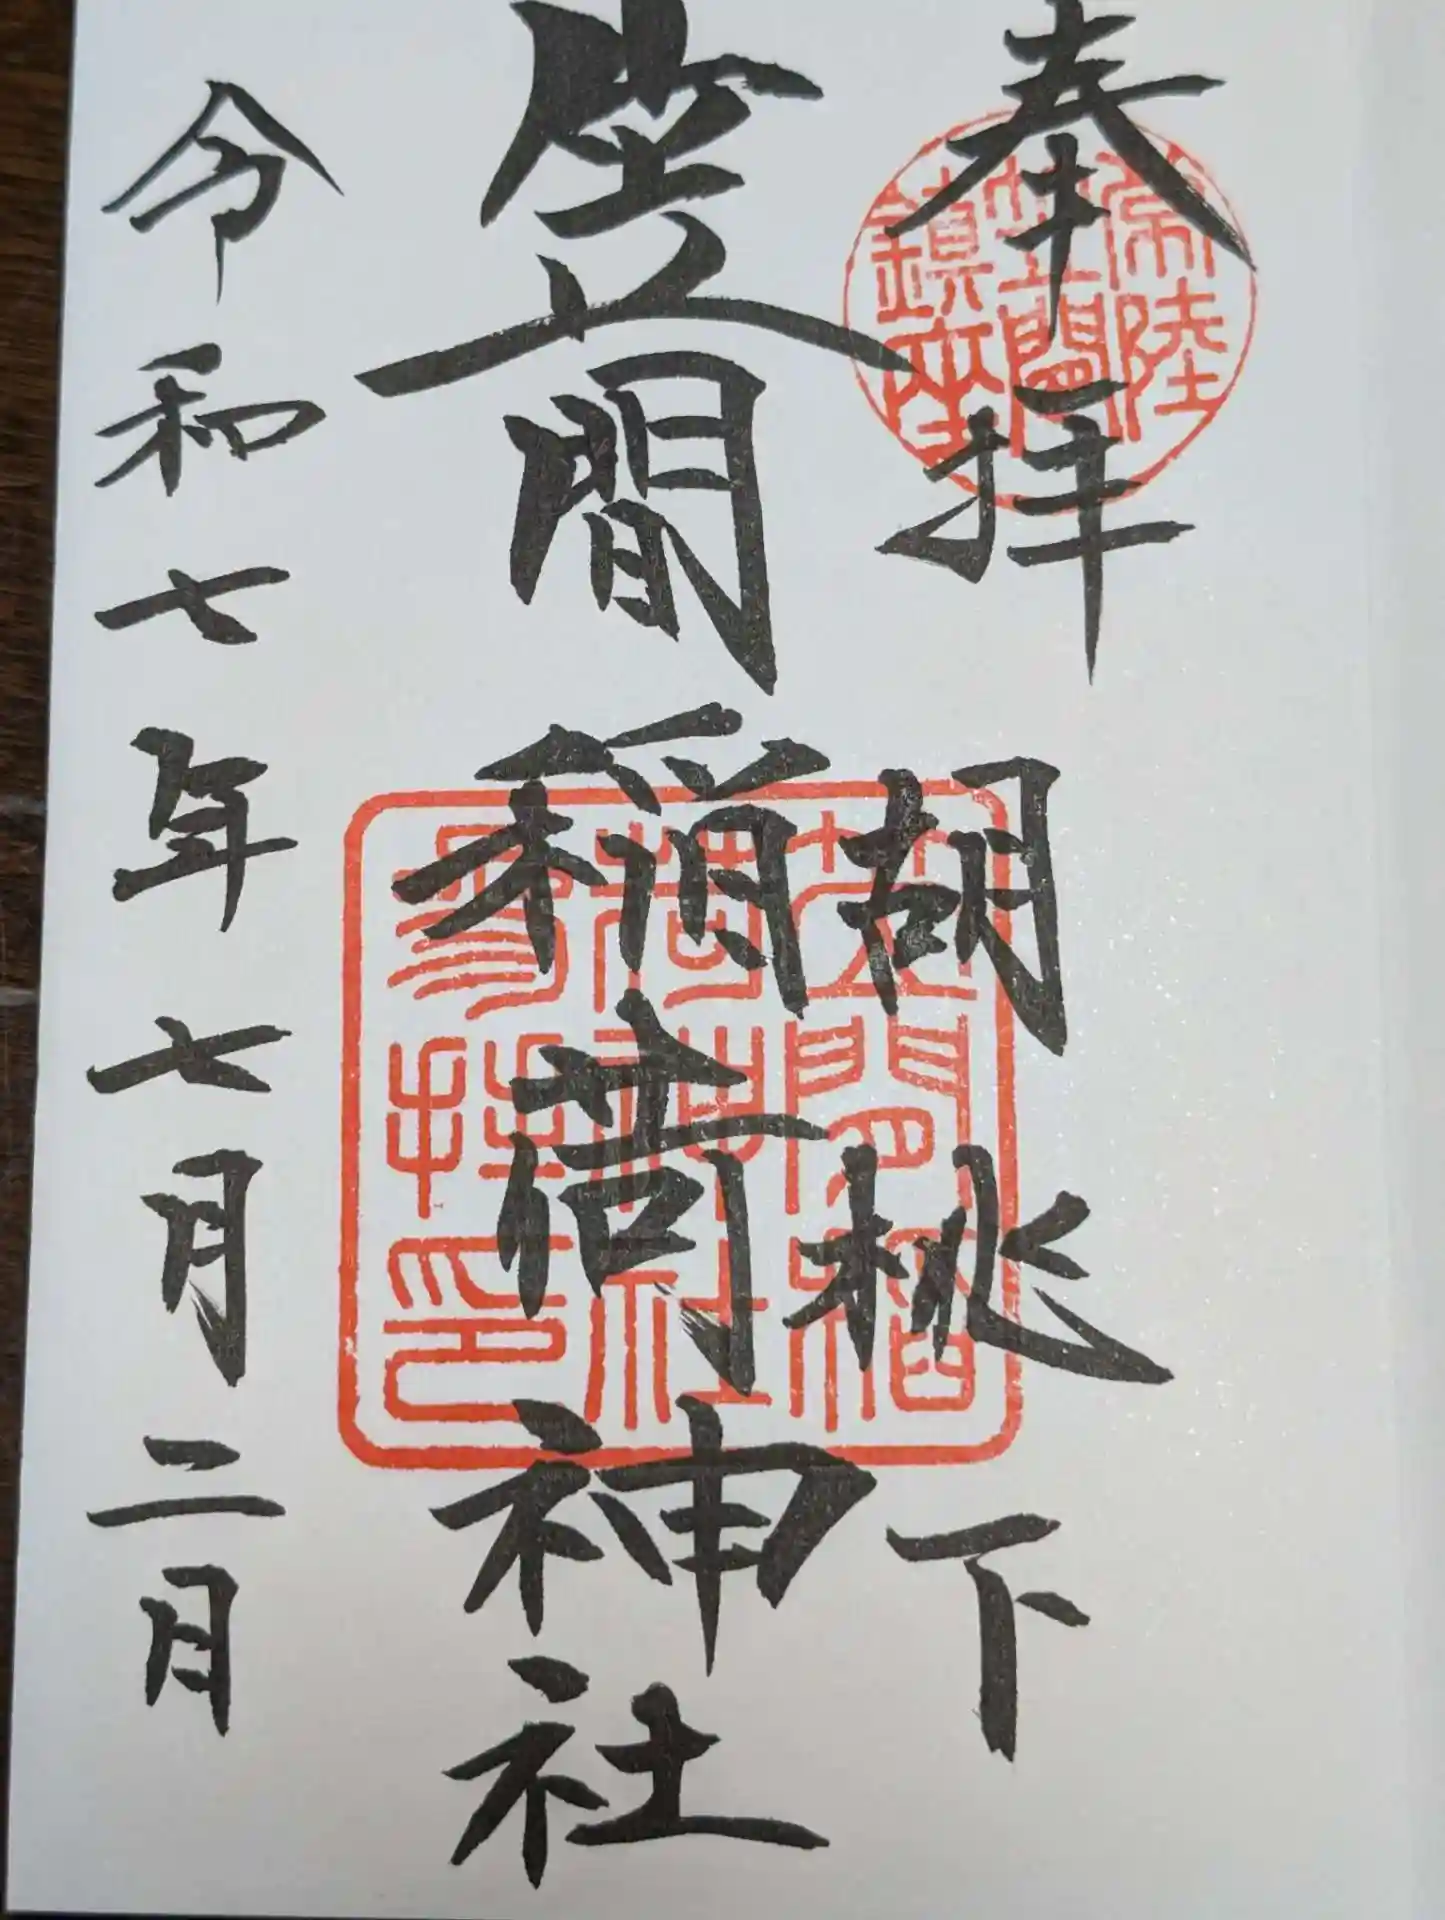 奉拝
常陸
笠間
鎮座
胡桃下
笠間稲荷神社
笠間稲
荷神社
参拝印
令和七年七月二日